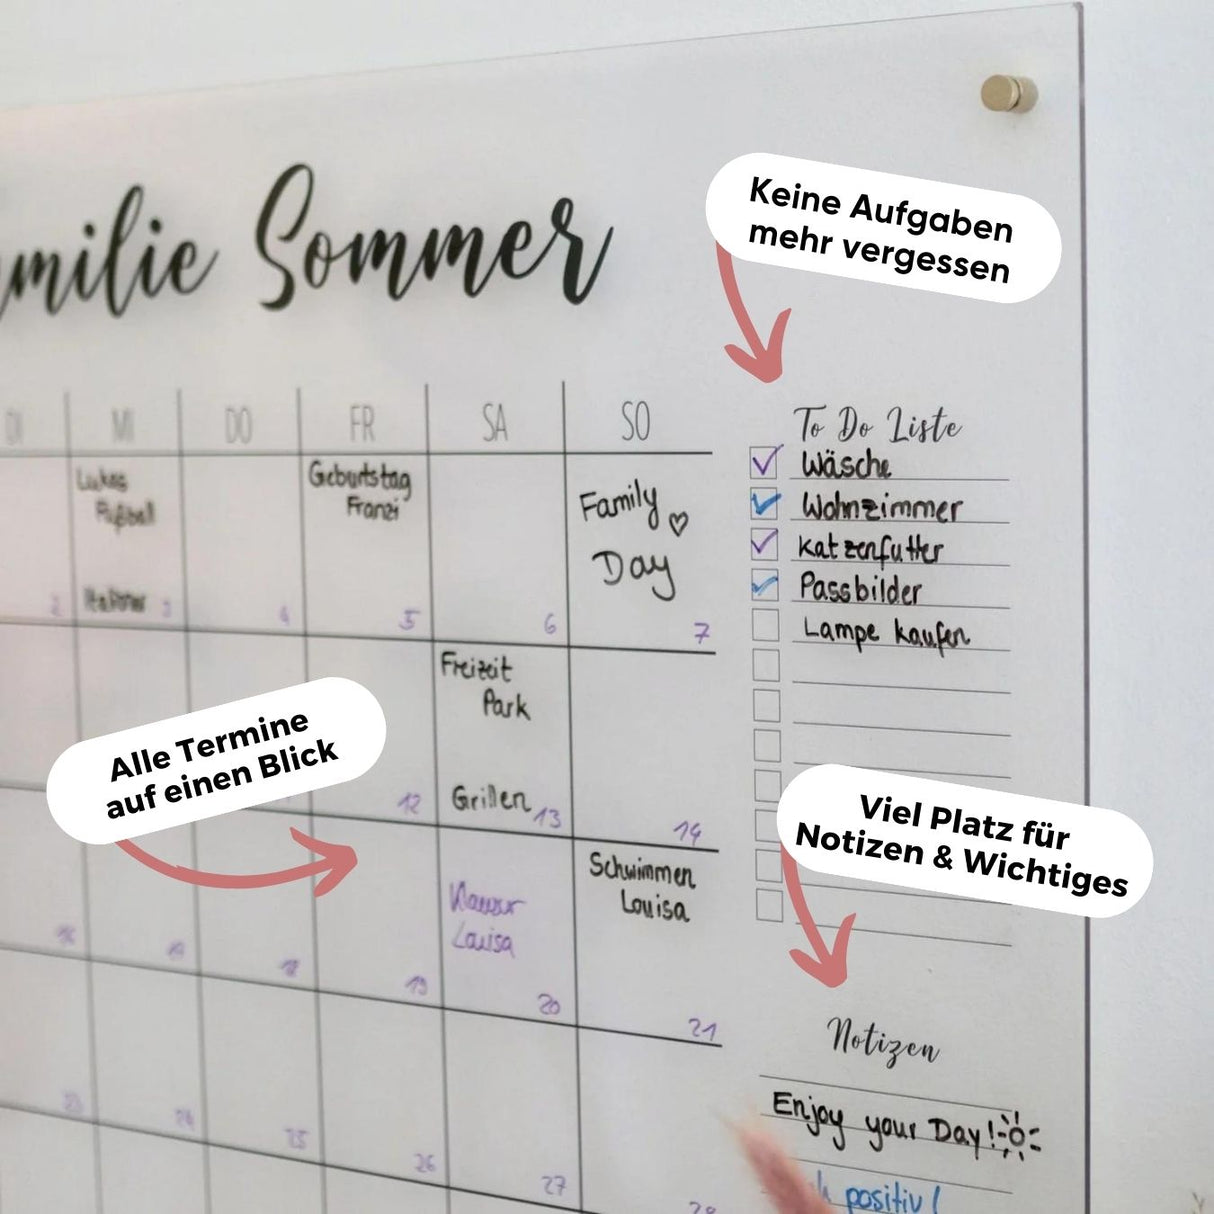 Keine Aufgaben
mehr vergessen
Sommer
DI MI DO FR SA SO
Lukas
Fußball
2
3
4
Geburtstag
Franzi
5
6
Family
Day
7
Freizeit
Park
Grillen
12
13
14
Alle Termine
auf einen Blick
Klausur
Louisa
Schwimmen
Louisa
18
19
20
21
23
24
25
26
27
28
To Do Liste
Wäsche
Wohnzimmer
Katzenfutter
Passbilder
Lampe kaufen
Viel Platz für
Notizen & Wichtiges
Notizen
Enjoy your Day!
positiv!